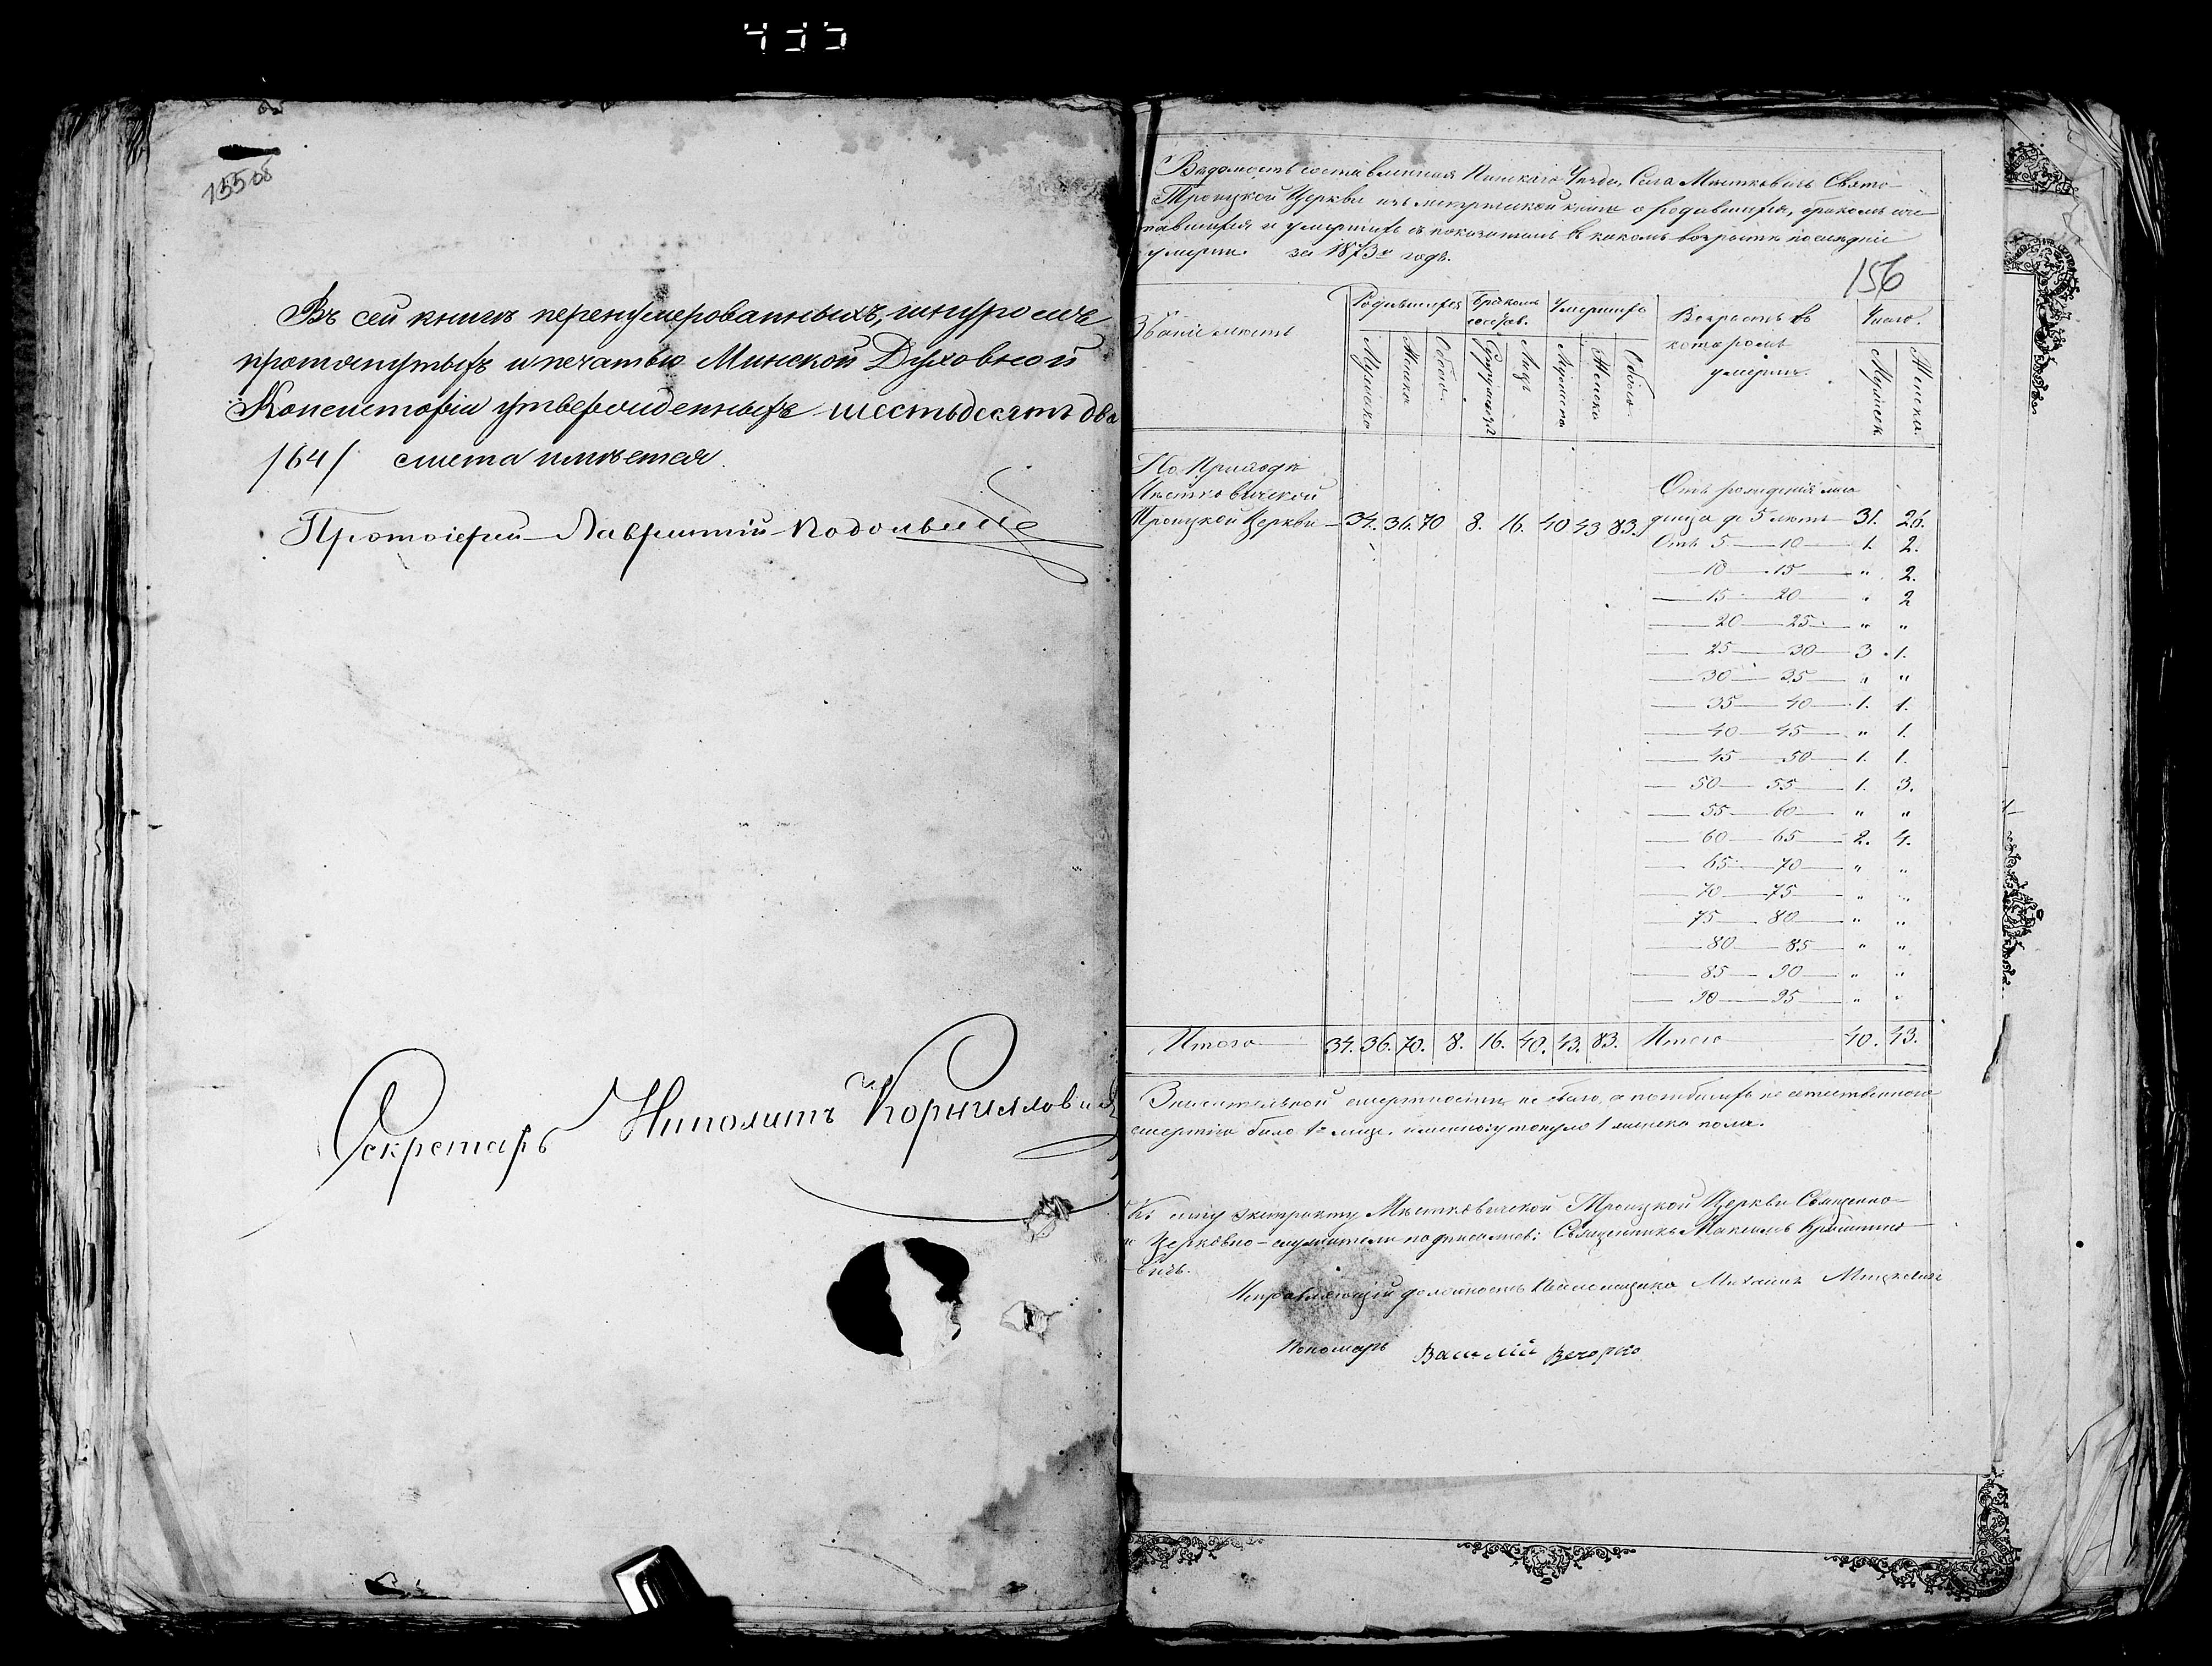 435
155 об
Въ сей книгѣ перенумерованныхъ, шнуромъ
протянутыхъ и печатью Минской Духовной
Консисторіи утвержденныхъ шестьдесятъ два
/64/ листа имѣется.
Протоіерей Лаврентій
Секретарь Ипполитъ Корниловичъ
Вѣдомость составленная Пинскаго Уѣзда, Села Мѣстковичъ Свято-
Троицкой Церкви изъ метрической книги о родившихся, бракомъ соче-
тавшихся и умершихъ съ показаніемъ въ какомъ возрастѣ послѣдніе
умерли за 1873й годъ.
156
Званіе мѣстъ
Родившихся
Бракомъ сочетав.
Умершихъ
Возрастъ въ которомъ умерли.
Число.
Мужеска
Женска
Обоего.
Супружествъ
Лицъ
Мужеска
Женска
Обоего.
Мужеск.
Женска.
По Приходѣ
Мѣстковичской
Троицкой Церкви — 34. 36. 70 8. 16. 40 43 83.
Отъ рожденія мла
денца до 5 лѣтъ — 31. 26.
Отъ 5 — 10 — 1. 2.
— 10 — 15 — " 2.
— 15 — 20 — " 2
— 20 — 25 — " "
— 25 — 30 — 3. 1.
— 30 — 35 — " "
— 35 — 40 — 1. 1.
— 40 — 45 — " 1.
— 45 — 50 — 1. 1.
— 50 — 55 — 1. 3.
— 55 — 60 — " "
— 60 — 65 — 2. 4.
— 65 — 70 — " "
— 70 — 75 — " "
— 75 — 80 — " "
— 80 — 85 — " "
— 85 — 90 — " "
— 90 — 95 — " "
Итого — 34. 36. 70. 8. 16. 40. 43. 83. Итого — 40. 43.
Значительной смертности не было, а погибшихъ не естественною
смертію было 1 лице, именно: утонуло 1 женска пола.
Къ сему экстракту Мѣстковичской Троицкой Церкви Священно-
и церковно-служители подписались: Священникъ Максимъ
вичъ.
Исправляющій должность Псаломщика Михаилъ Мицкевичъ
Пономарь Василій Вечорко